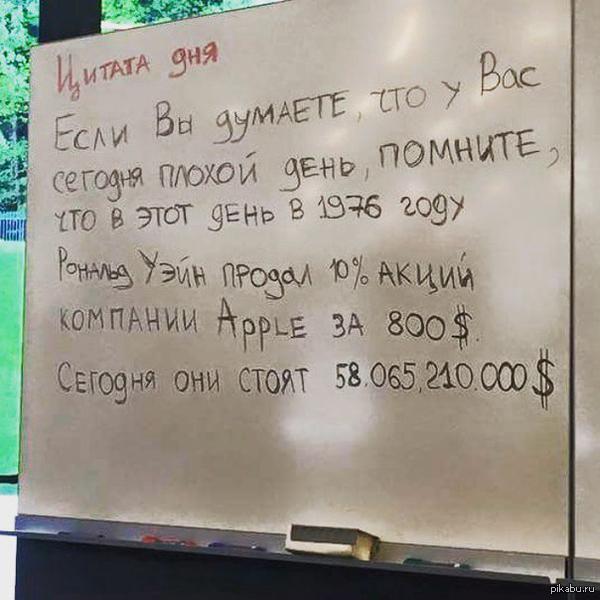 Цитата дня
Если Вы думаете, что у Вас
сегодня плохой день, помните,
что в этот день в 1976 году
Рональд Уэйн продал 10% акций
компании Apple за 800$.
Сегодня они стоят 58.065.210.000$
pikabu.ru